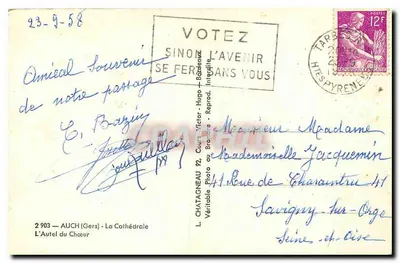 23-9-58
VOTEZ
SINON L'AVENIR
SE FERA SANS VOUS
12F
TARBES
HTES PYRENEES
Amical Souvenir
de notre passage
E. Bazin
Monsieur Madame
Mademoiselle Jacquemin
41 Rue de Charaintru 41
Savigny-sur-Orge
Seine-et-Oise
L. CHATAGNEAU 92, Cours Victor-Hugo - Bordeaux
Véritable Photo au Bromure - Reprod. Interdite
2 903 — AUCH (Gers) - La Cathédrale
L'Autel du Chœur